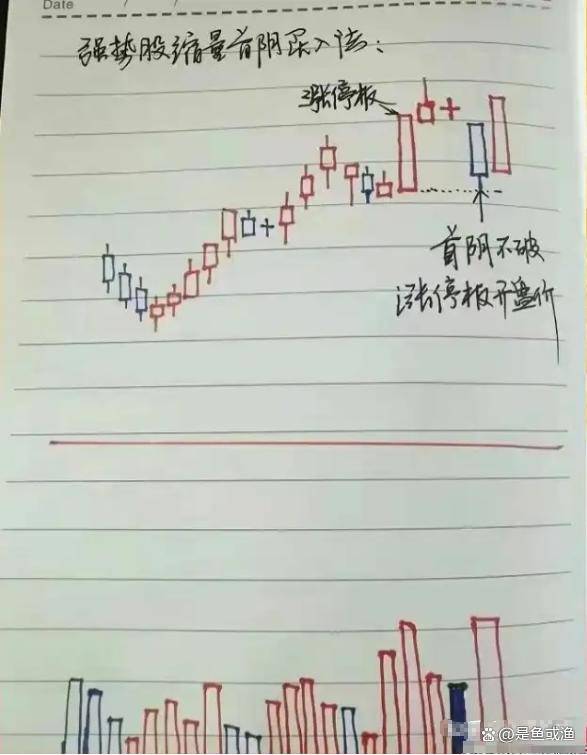 Date / /
强势股缩量首阴买入法:
涨停板
首阴不破
涨停板开盘价
@是鱼或渔